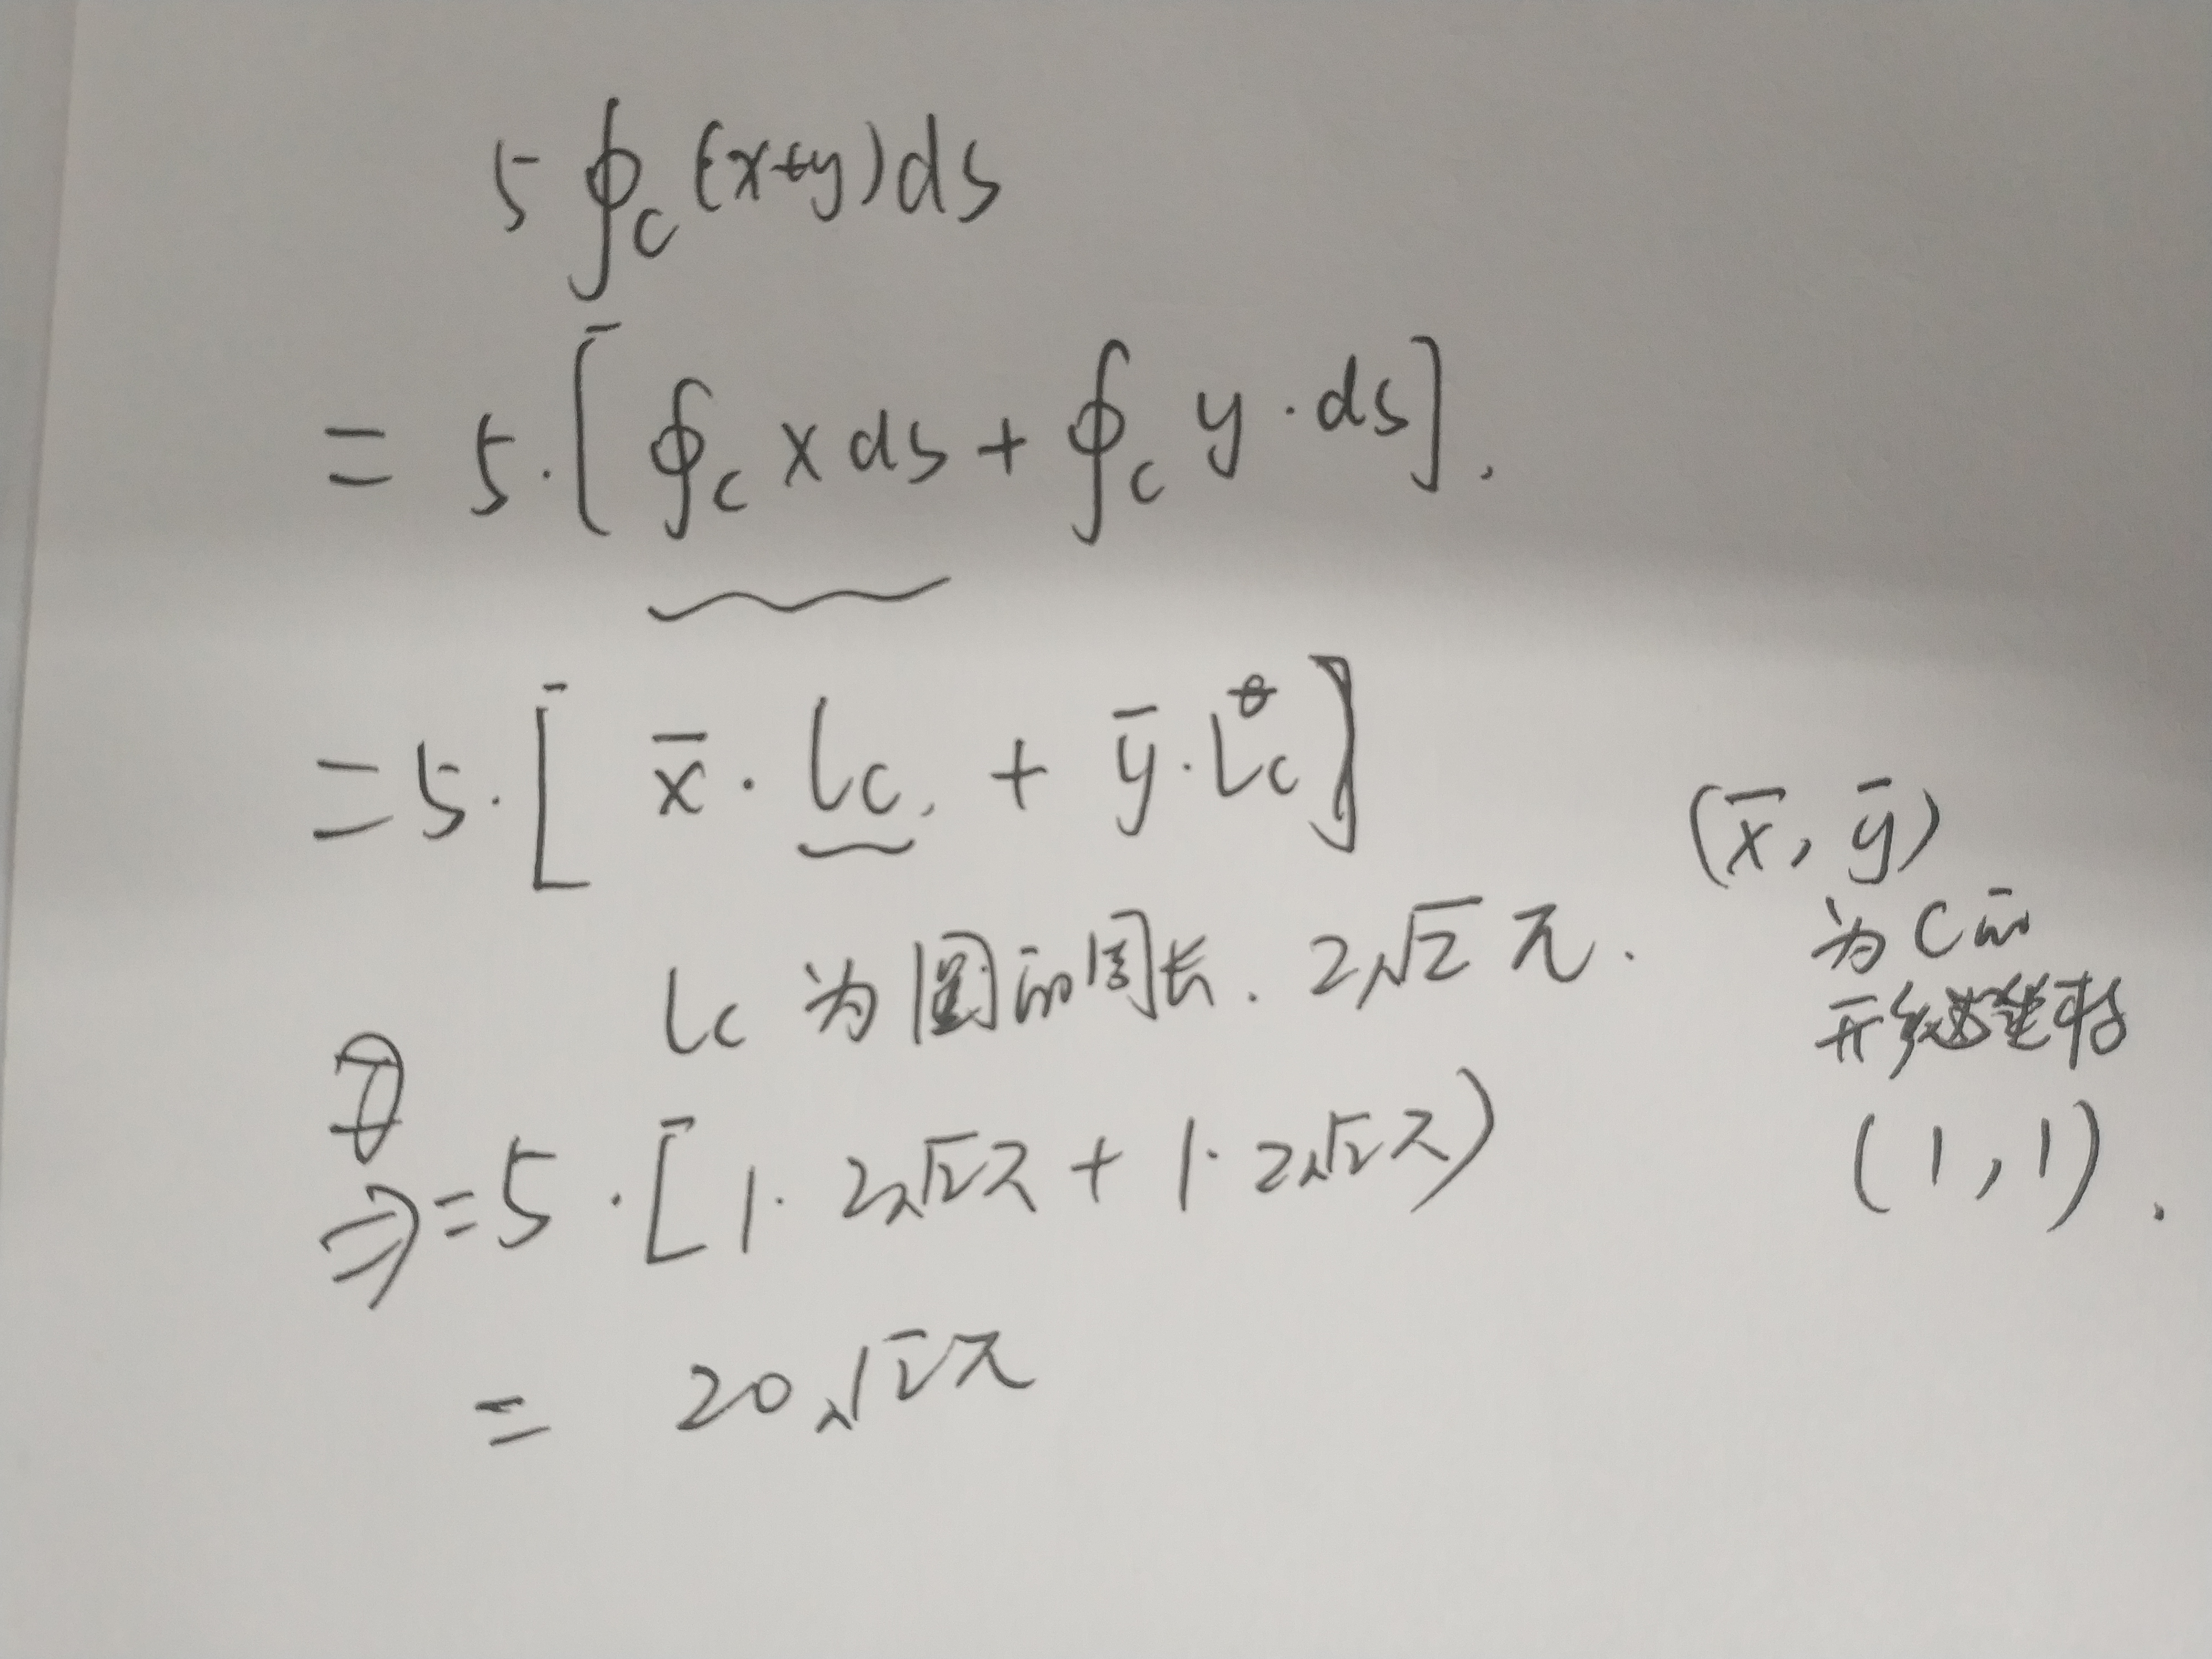 5∮_C (x+y)ds
= 5·[∮_C x ds + ∮_C y·ds].
= 5·[x̄·l_C, + ȳ·L_C]
(x̄, ȳ)
为C的
形心坐标
(1, 1).
l_C 为圆的周长. 2√2 π.
⇒ = 5·[1·2√2π + 1·2√2π)
= 20√2π